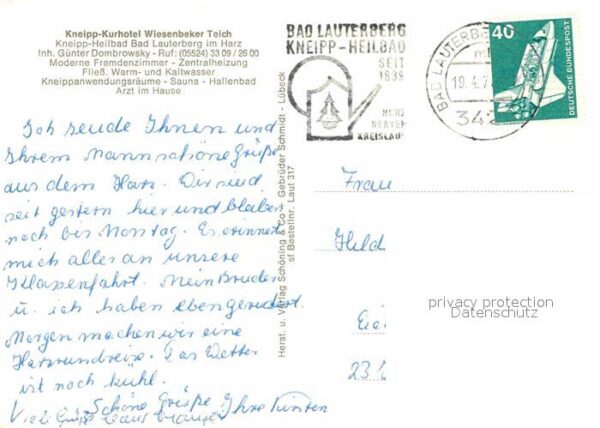 Kneipp-Kurhotel Wiesenbeker Teich
Kneipp-Heilbad Bad Lauterberg im Harz
Inh. Günter Dombrowsky - Ruf: (05524) 33 09 / 26 00
Moderne Fremdenzimmer - Zentralheizung
Fließ. Warm- und Kaltwasser
Kneippanwendungsräume - Sauna - Hallenbad
Arzt im Hause
Ich sende Ihnen und
Ihrem Mann schöne Grüße
aus dem Harz. Wir sind
seit gestern hier und bleiben
noch bis Montag. Es erinnert
mich alles an unsere
Klassenfahrt. Mein Bruder
u. ich haben eben gerudert.
Morgen machen wir eine
Harzrundreise. Das Wetter
ist noch kühl.
Schöne Grüße Ihre
Viele Grüße
Herst. u. Verlag Schöning & Co + Gebrüder Schmidt - Lübeck
sf Bestellnr. Laut 317
BAD LAUTERBERG
KNEIPP-HEILBAD
SEIT
1839
HERZ
NERVEN
KREISLAUF
BAD LAUTERBE
19.4.7
342
40
DEUTSCHE BUNDESPOST
Frau
Hild
23
privacy protection
Datenschutz